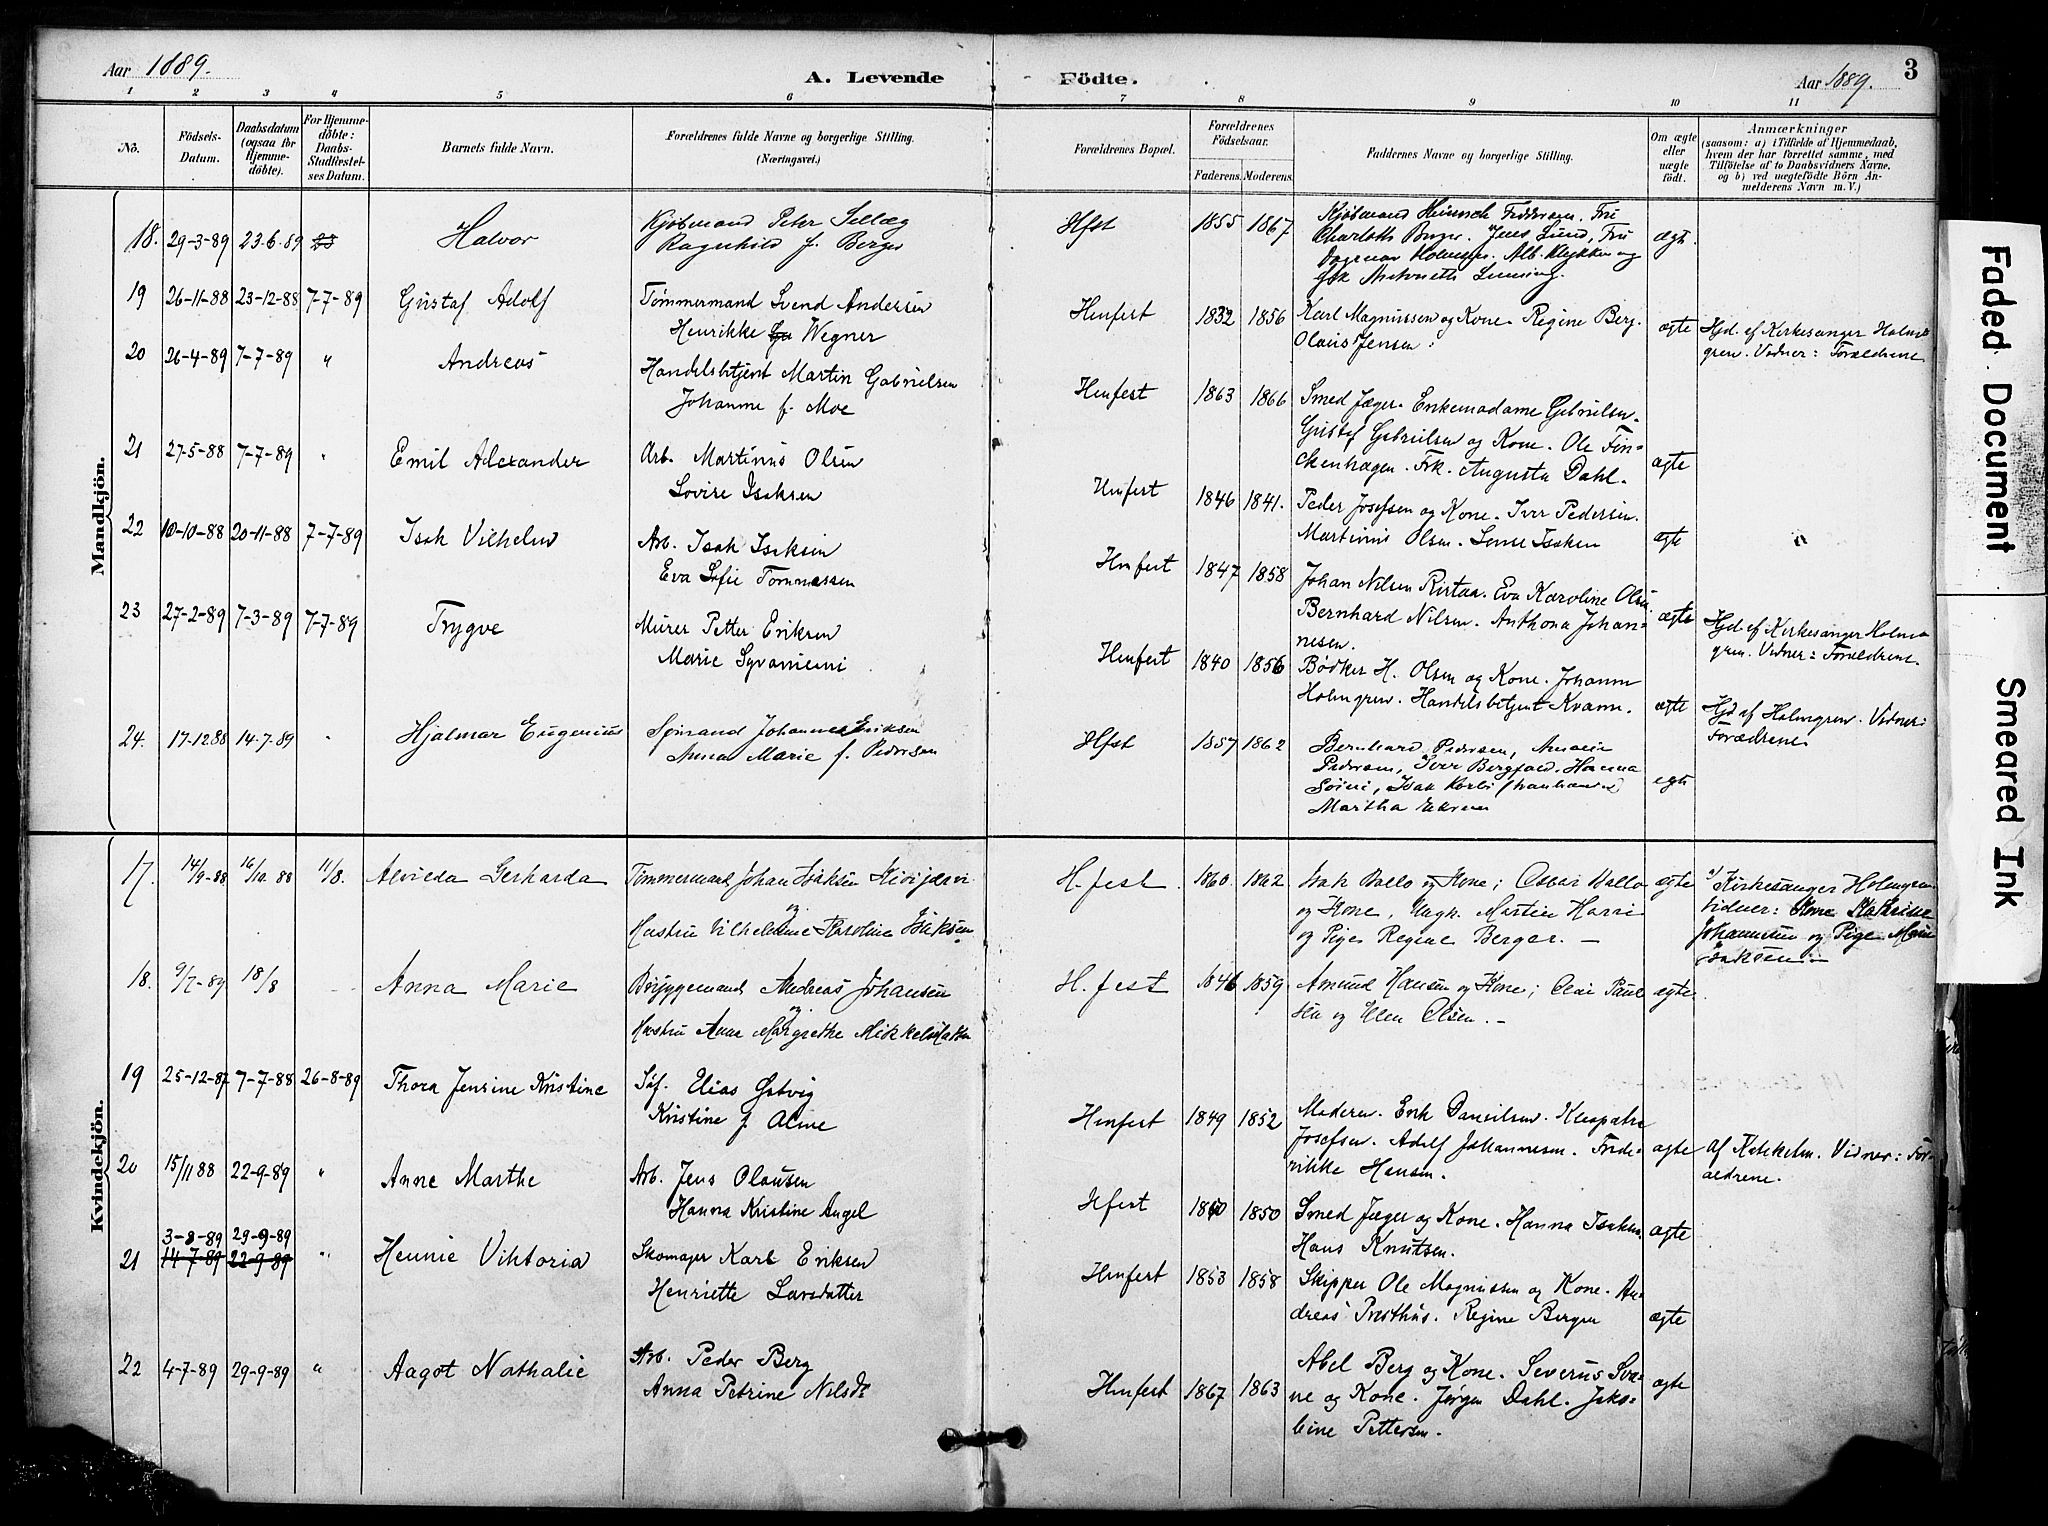 Aar 1889.
A. Levende Födte.
Aar 1889.
3
1 2 3 4 5 6 7 8 9 10 11
No.
Födsels-
Datum.
Daabsdatum
(ogsaa for
Hjemme-
döbte).
For Hjemme-
döbte:
Daabs-
Stadfæstel-
ses Datum.
Barnets fulde Navn.
Forældrenes fulde Navne og borgerlige Stilling.
(Næringsvei.)
Forældrenes Bopæl.
Forældrenes
Födselsaar.
Faderens. Moderens.
Faddernes Navne og borgerlige Stilling.
Om ægte
eller
uægte
födt.
Anmærkninger
(saasom: a) i Tilfælde af Hjemmedaab,
hvem der har forrettet samme, med
Tilföielse af to Daabsvidners Navne,
og b) ved uægtefödte Börn An-
melderens Navn m. V.)
Mandkjön.
18. 29-3-89 23.6.89 Halvor
Kjöbmand Peter
Ragnhild f. Berger
Hfst 1855 1867
Kjöbmand Heinrich Feddersen. Fru
Charlotte Berger. Jens Lund, Fru
Dagmar
ægte.
19 26-11-88 23-12-88 7-7-89 Gustaf Adolf
Tømmermand Svend Andersen
Henrikke Wegner
Hmfest 1832 1856
Karl Magnussen og Kone. Regine Berg.
Olaus Jensen.
ægte
Hjd. af Kirkesanger Holm-
gren. Vidner: Forældrene
20 26-4-89 7-7-89 " Andreas
Handelsbetjent Martin Gabrielsen
Johanne f. Moe
Hmfest 1863 1866
Smed Jæger. Enkemadame Gabrielsen.
Gustaf Gabrielsen og Kone. Ole Fin-
ckenhagen. Frk. Augusta Dahl.
ægte
21 27-5-88 7-7-89 " Emil Alexander
Arb. Martinus Olsen
Lovise Isaksen
Hmfest 1846 1841.
Peder Josefsen og Kone. Iver Pedersen.
Martinus Olsen. Isaksen
ægte
22 10-10-88 20-11-88 7-7-89 Isak Vilhelm
Arb. Isak Isaksen
Eva Sofie Tommassen
Hmfest 1847 1858
Johan Nilsen Ristaa. Eva Karoline Olsen
Bernhard Nilsen. Anthona Johan-
nesen.
ægte
Hjd af Kirkesanger Holm-
gren. Vidner: Forældrene.
23 27-2-89 7-3-89 7-7-89 Trygve
Murer Petter Eriksen
Marie Syvaniemi
Hmfest 1840 1856
Bödker H. Olsen og Kone. Johann
Holmgren. Handelsbetjent Kvam.
ægte
Hjd af Holmgren. Vidner:
Forældrene
24. 17-12 88 14-7-89 Hjalmar Eugenius
Sömand Johannes Eriksen
Anna Marie f. Pedersen
Hfst 1857 1862
Bernhard Pedersen, Amalie
Pedersen, Hanna
Martha
ægte
Kvindekjön.
17. 14/9-88 16/10 88 11/8. Alvilda Gerharda
Tømmermand Johan Isaksen Kivijærvi
og
Hustru Vilhelmine Karoline Isaksen
H.fest. 1860. 1862.
Isak Ballo og Kone; Oscar Ballo
og Kone, Ungk. Martin Harri
og Pige Regine Berger. —
ægte
Kirkesanger Holmgren.
Vidner: Kone Kathrine
Johannesen og Pige Marie
Isaksen. —
18. 9/7-89 18/8 Anna Marie
Bryggemand Andreas Johansen
og
Hustru Anne Margrethe Mikkelsdatter
H.fest 1846 1859
Amund Hansen og Kone; Paul-
sen og Ellen Olsen. —
ægte.
19 25-12-87 7-7-88 26-8-89 Thora Jensine Kristine
Søf. Elias Østvig
Kristine f. Aline
Hmfest 1849 1852
Moderen. Erik Danielsen. Kleopatra
Josefsen. Adolf Johannesen. Frede-
rikke Hansen.
ægte
Af Vidner: For-
ældrene.
20 15/11 88 22-9-89 " Anne Marthe
Arb. Jens Olausen
Hanna Kristine Angel
Hfest 1850
Smed Jæger og Kone. Hanna Isaksen
Hans Knutsen.
ægte
3-8-89 29-9-89
21 14-7-89 22-9-89 " Hennie Viktoria
Skomager Karl Eriksen
Henriette Larsdatter
Hmfest 1853 1858
Skipper Ole Magnussen og Kone. An-
dreas Presthus. Regine Berger
ægte
22 4-7-89 29-9-89 " Aagot Nathalie
Arb. Peder Berg
Anna Petrine Nilsdt
Hmfest 1867 1863
Abel Berg og Kone. Severus Sva-
ne og Kone. Jørgen Dahl. Jako-
bine Pettersen.
ægte
Faded Document
Smeared Ink